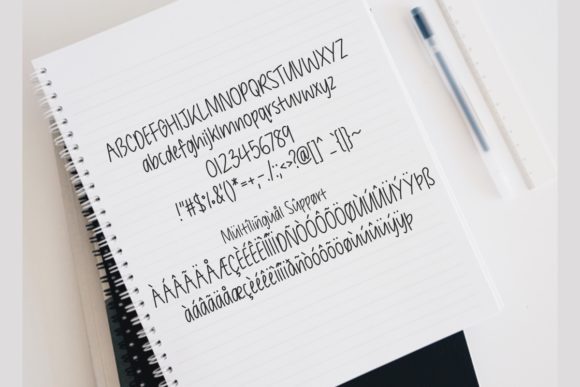 ABCDEFGHIJKLMNOPQRSTUVWXYZ
abcdefghijklmnopqrstuvwxyz
0123456789
!"#$%&'()*=+,-./:;<>?@[]^_`{|}~
Mùltílíngùâl Sùppørt
ÀÁÂÃÄÅÆÇÈÉÊËÌÍÎÏÐÑÒÓÔÕÖØÙÚÛÜÝŸÞß
àáâãäåæçèéêëìíîïðñòóôõöøùúûüýÿþ